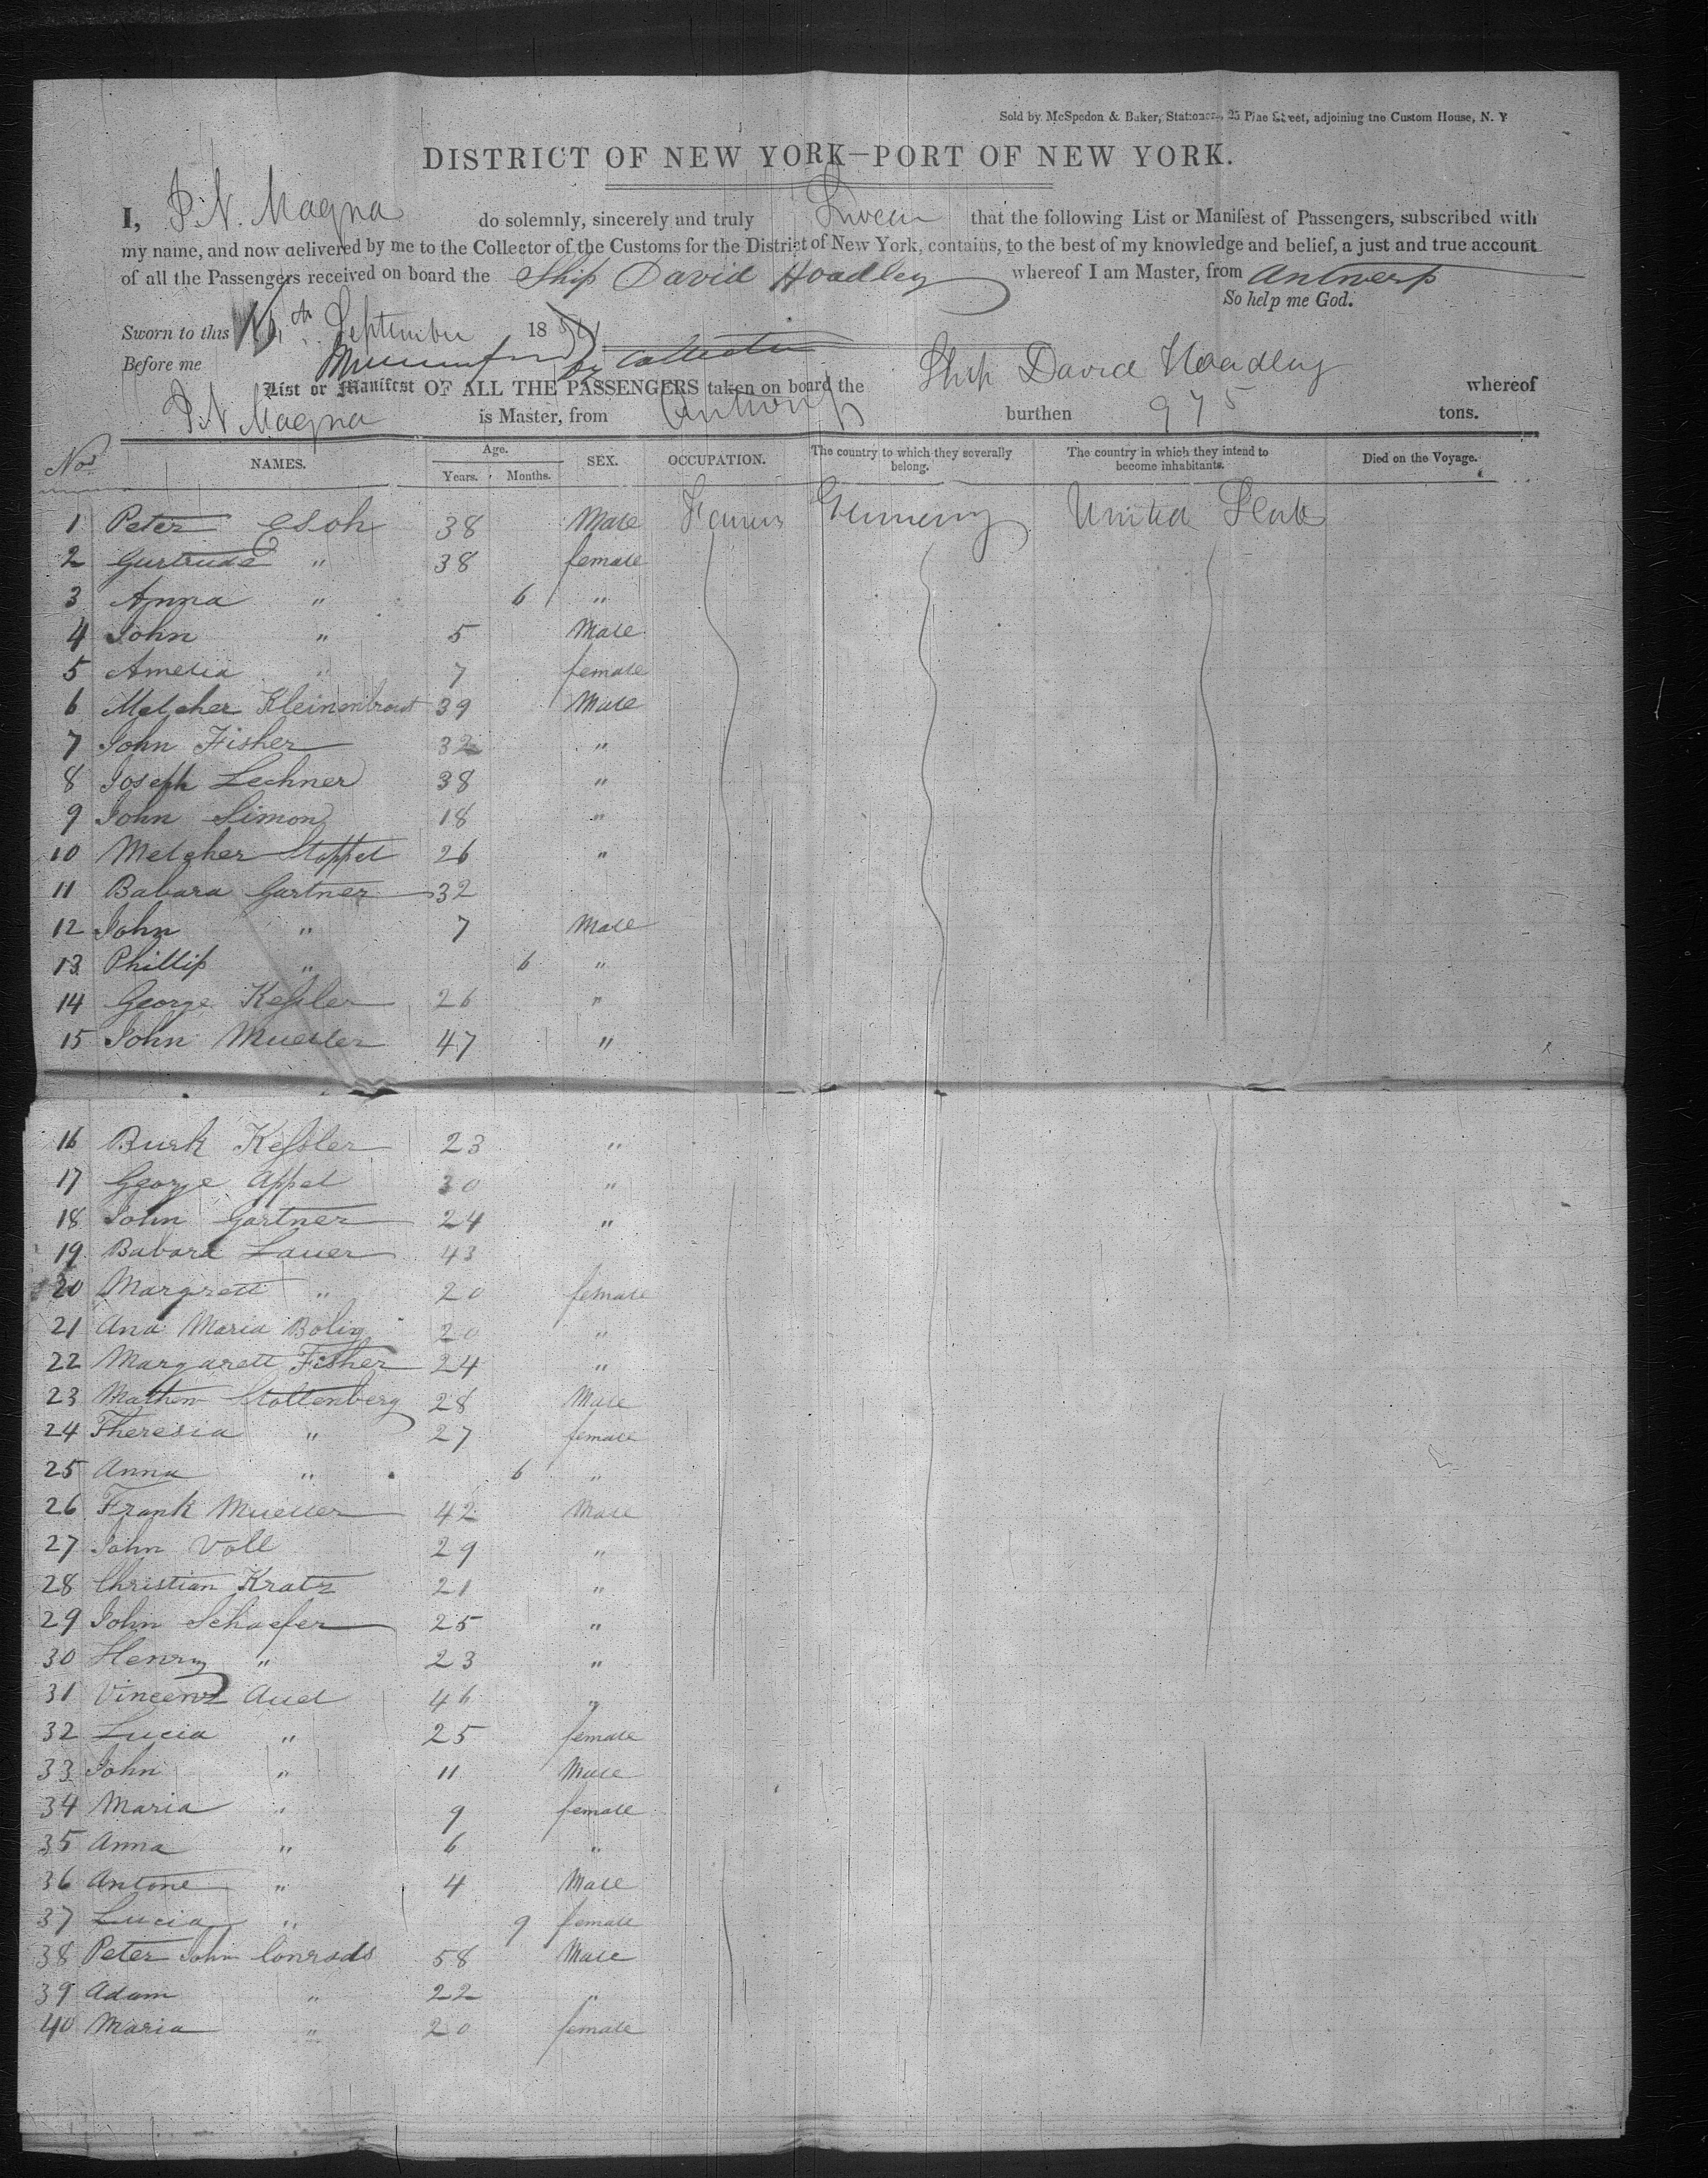 Sold by McSpedon & Baker, Stationers, 25 Pine Street, adjoining the Custom House, N. Y
DISTRICT OF NEW YORK—PORT OF NEW YORK.
I, P. N. Magna do solemnly, sincerely and truly Swear that the following List or Manifest of Passengers, subscribed with
my name, and now delivered by me to the Collector of the Customs for the District of New York, contains, to the best of my knowledge and belief, a just and true account
of all the Passengers received on board the Ship David Hoadley whereof I am Master, from Antwerp
So help me God.
Sworn to this th September 18
Before me Collector
List or Manifest OF ALL THE PASSENGERS taken on board the Ship David Hoadley whereof
P N Magna is Master, from Antwerp burthen 975 tons.
Nos NAMES. Age. Years. Months. SEX. OCCUPATION. The country to which they severally belong. The country in which they intend to become inhabitants. Died on the Voyage.
1 Peter Esch 38 Male Farmer Germany United States
2 Gurtrude " 38 female
3 Anna " 6 "
4 John " 5 Male
5 Amelia " 7 female
6 Melcher 39 Male
7 John Fisher 32 "
8 Joseph Lechner 38 "
9 John Simon 18 "
10 Melcher Stoppel 26 "
11 Babara Gartner 32
12 John " 7 Male
13 Phillip " 6 "
14 George Keßler 26 "
15 John Mueller 47 "
16 Burk Keßler 23 "
17 George Appel 30 "
18 John Gartner 24 "
19 Babara Lauer 43
20 Margrett " 20 female
21 Ana Maria Bolig 20 "
22 Margarett Fisher 24 "
23 Mathew Stoltenberg 28 Male
24 Theresia " 27 female
25 Anna " 6 "
26 Frank Mueller 42 Male
27 John Voll 29 "
28 Christian Kratz 21 "
29 John Schaefer 25 "
30 Henry " 23 "
31 Vincenz Auel 46 "
32 Lucia " 25 female
33 John " 11 Male
34 Maria " 9 female
35 Anna " 6 "
36 Antone " 4 Male
37 Lucia " 9 female
38 Peter John Conrads 58 Male
39 Adam " 22 "
40 Maria " 20 female